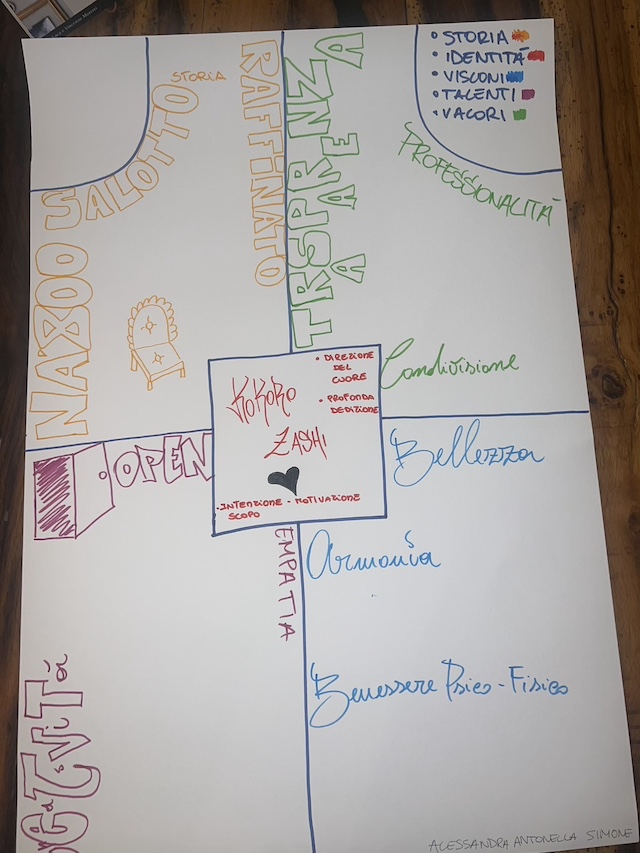 STORIA
IDENTITÀ
VISCONI
TALENTI
VALORI
STORIA
SALOTTO
RAFFINATO
NAB800
TRSPARAENZA
PROFESSIONALITÀ
Condivisione
KOKORO
ZASHI
• DIREZIONE
DEL
CUORE
• PROFONDA
DEDIZIONE
•INTENZIONE - MOTIVAZIONE
SCOPO
OPEN
EMPATIA
Bellezza
Armonia
Benessere Psico-Fisico
ALESSANDRA ANTONELLA SIMONE